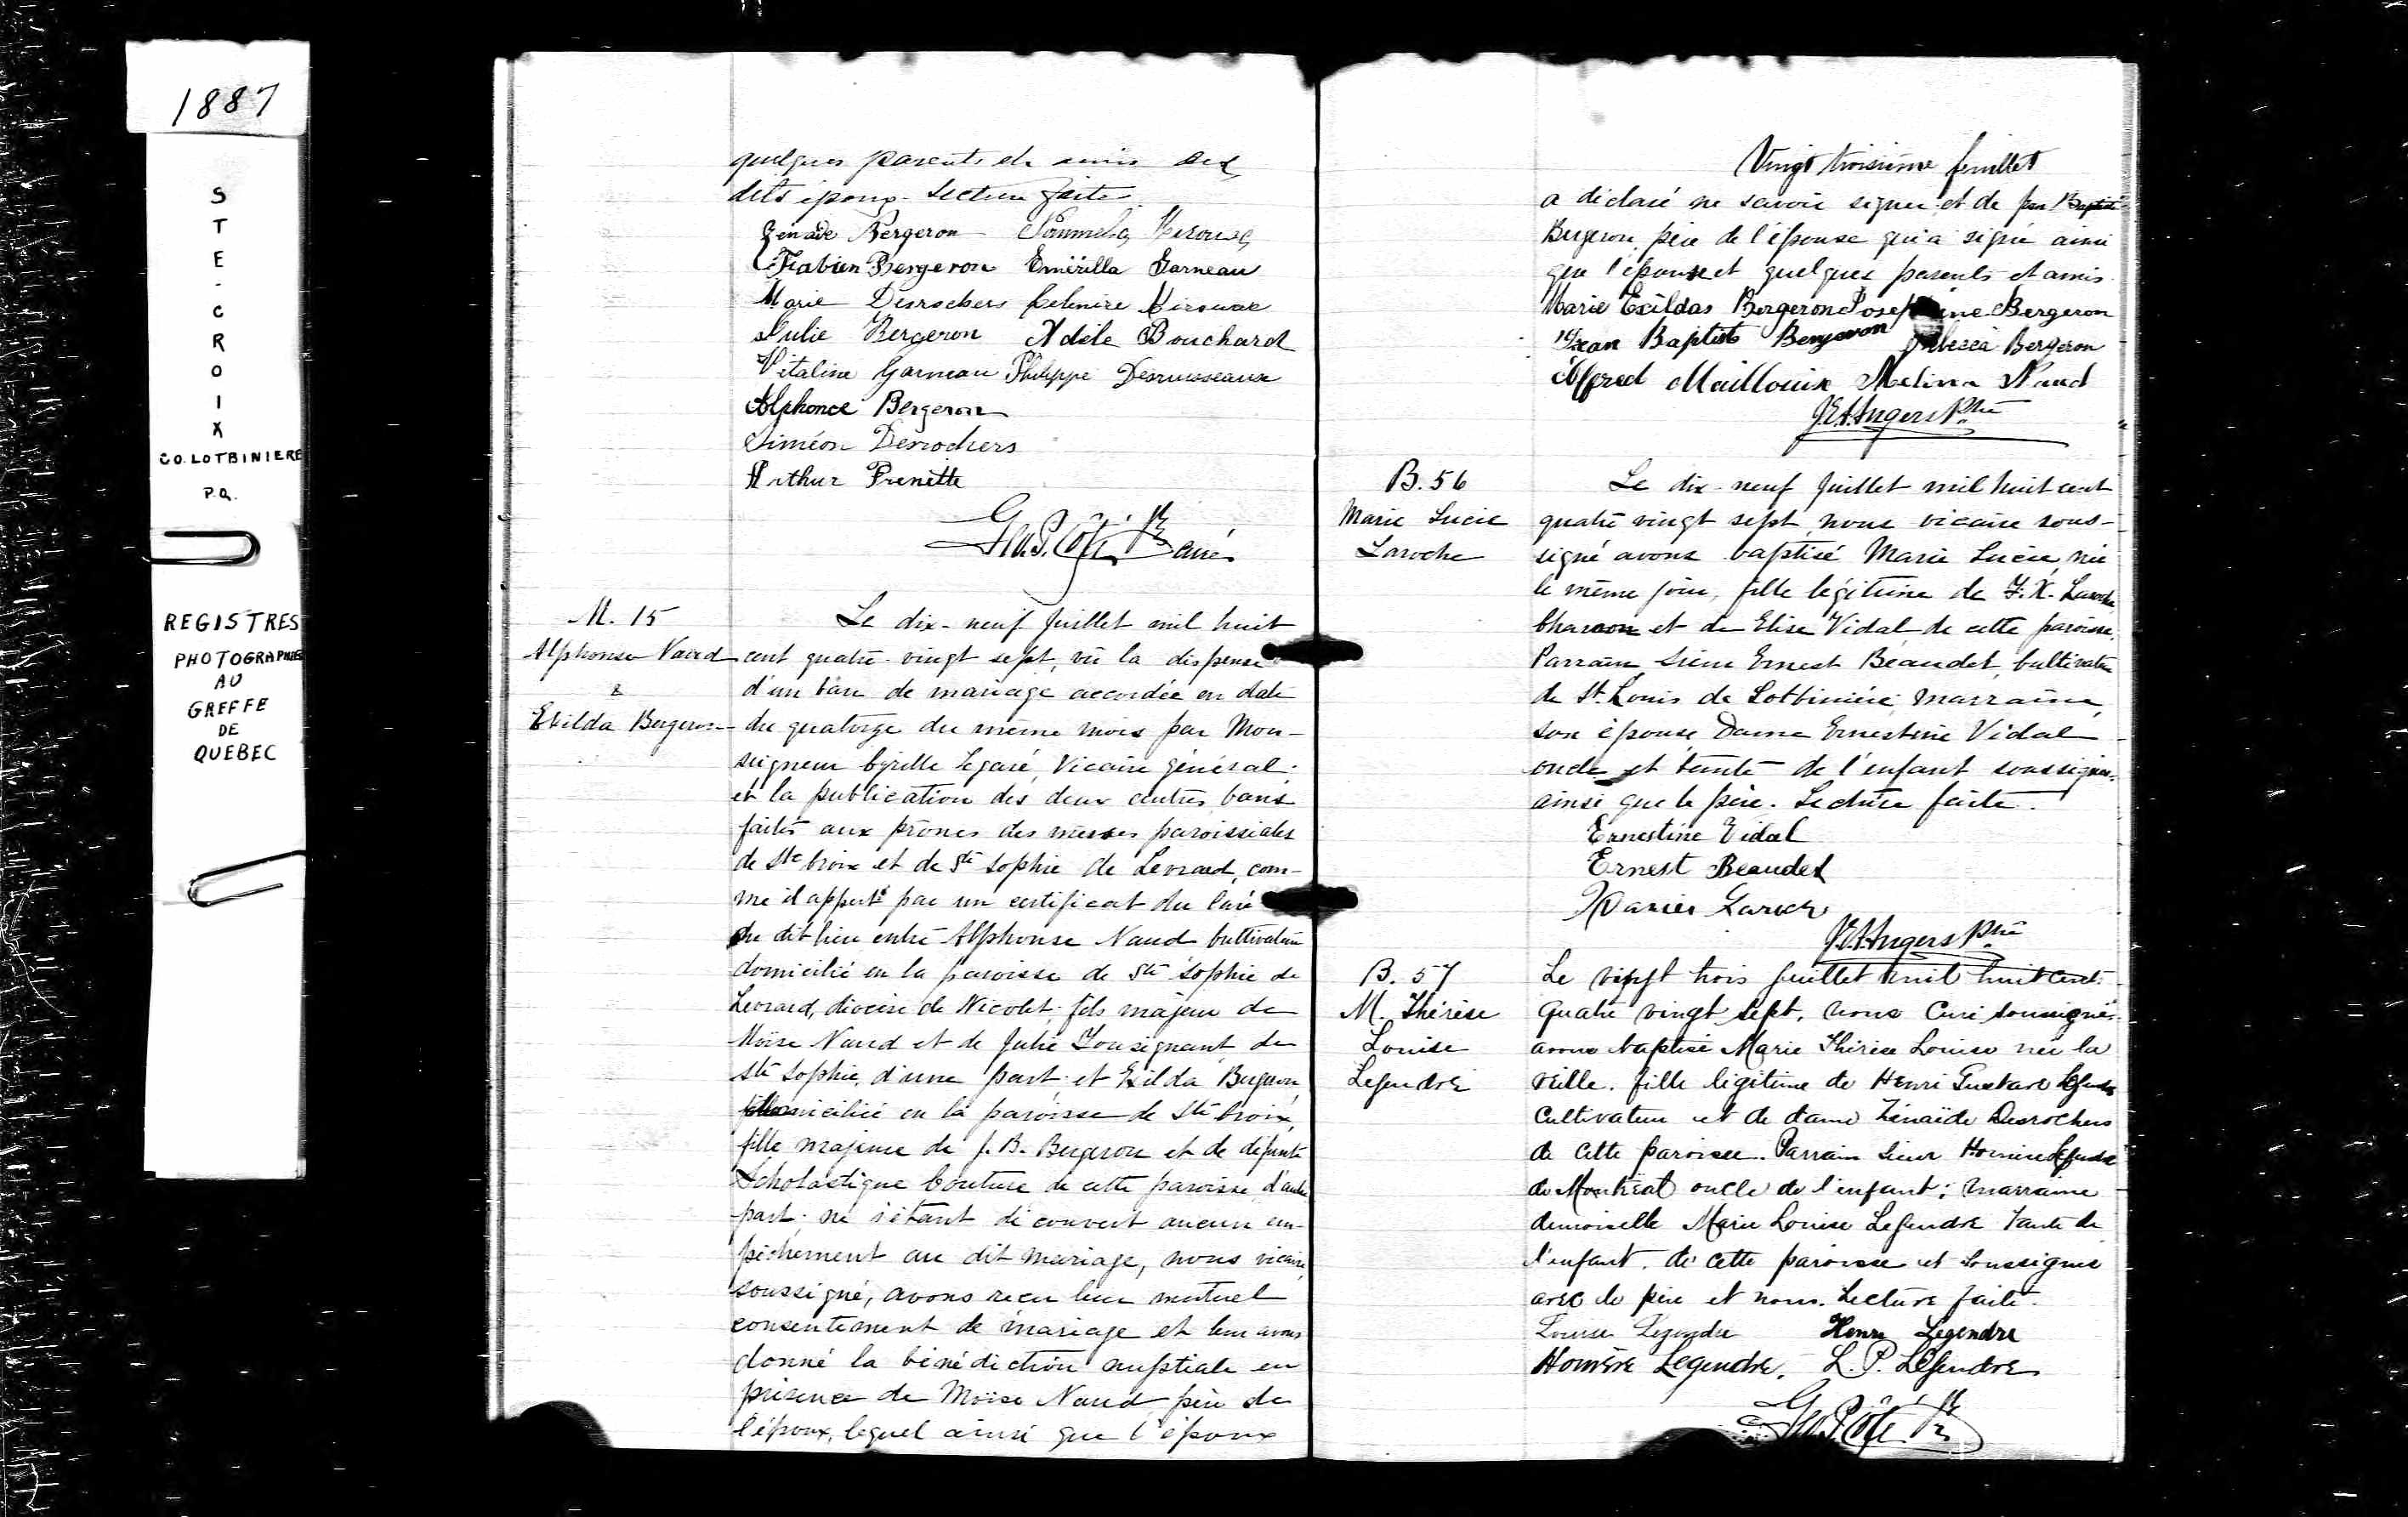 1887
STE-CROIX
CO. LOTBINIERE
P.Q.
REGISTRES
PHOTOGRAPHIES
AU
GREFFE
DE
QUEBEC
quelques parents et amis des
dits époux. Lecture faite.
Zénaïde Bergeron
Fabien Bergeron Emérilla Garneau
Marie Desrochers Kirouac
Julie Bergeron Adèle Bouchard
Vitaline Garneau Philippe Desruisseaux
Alphonce Bergeron
Siméon Desrochers
Arthur Frenette
Geo. P. Côté Ptre curé
M. 15
Alphonse Naud
&
Exilda Bergeron
Le dix-neuf Juillet mil huit
cent quatre-vingt sept, vu la dispense
d'un ban de mariage accordée en date
du quatorze du même mois par Mon-
seigneur Cyrille Legaré, Vicaire général;
et la publication des deux autres bans
faites aux prônes des messes paroissiales
de Ste Croix et de Ste Sophie de Levrard, com-
me il appert par un certificat du Curé
du dit lieu entre Alphonse Naud Cultivateur
domicilié en la paroisse de Ste Sophie de
Levrard, diocèse de Nicolet, fils majeur de
Moïse Naud et de Julie Tousignant de
Ste Sophie, d'une part; et Exilda Bergeron,
domiciliée en la paroisse de Ste Croix,
fille majeure de J. B. Bergeron et de défunte
Scholastique Couture de cette paroisse d'autre
part; ne s'étant découvert aucun em-
pêchement au dit mariage, nous vicaire,
soussigné, avons reçu leur mutuel
consentement de mariage et leur avons
donné la bénédiction nuptiale en
présence de Moïse Naud père de
l'époux, lequel ainsi que l'époux
Vingt troisième feuillet
a déclaré ne savoir signer et de Jean Baptiste
Bergeron, père de l'épouse qui a signé ainsi
que l'épouse et quelques parents et amis.
Marie Exildas Bergeron Josephine Bergeron
Jean Baptiste Bergeron Rebecca Bergeron
Alfred Mailloux Melina Naud
J.E.A. Angers Ptre
B. 56
Marie Lucie
Laroche
Le dix-neuf Juillet mil huit cent
quatre vingt sept, nous vicaire sous-
signé avons baptisé Marie Lucie, née
le même jour, fille légitime de F.X. Laroche
Charron et de Elise Vidal de cette paroisse.
Parrain Sieur Ernest Beaudet, Cultivateur
de St. Louis de Lotbinière; marraine,
son épouse Dame Ernestine Vidal
oncle et tante de l'enfant soussignés
ainsi que le père. Lecture faite.
Ernestine Vidal
Ernest Beaudet
J.E.A. Angers Ptre
B. 57
M. Thérèse
Louise
Legendre
Le vingt trois Juillet mil huit cent
quatre vingt sept, nous Curé soussigné
avons baptisé Marie Thérèse Louise née la
veille, fille légitime de Henri Gustave Legendre
Cultivateur et de dame Zénaïde Desrochers
de cette paroisse. Parrain Sieur Homère Legendre
de Montréal oncle de l'enfant; marraine
demoiselle Marie Louise Legendre tante de
l'enfant, de cette paroisse et soussignés
avec le père et nous. Lecture faite.
Louise Legendre Henri Legendre
Homère Legendre, L. P. Legendre
Geo. P. Côté Ptre